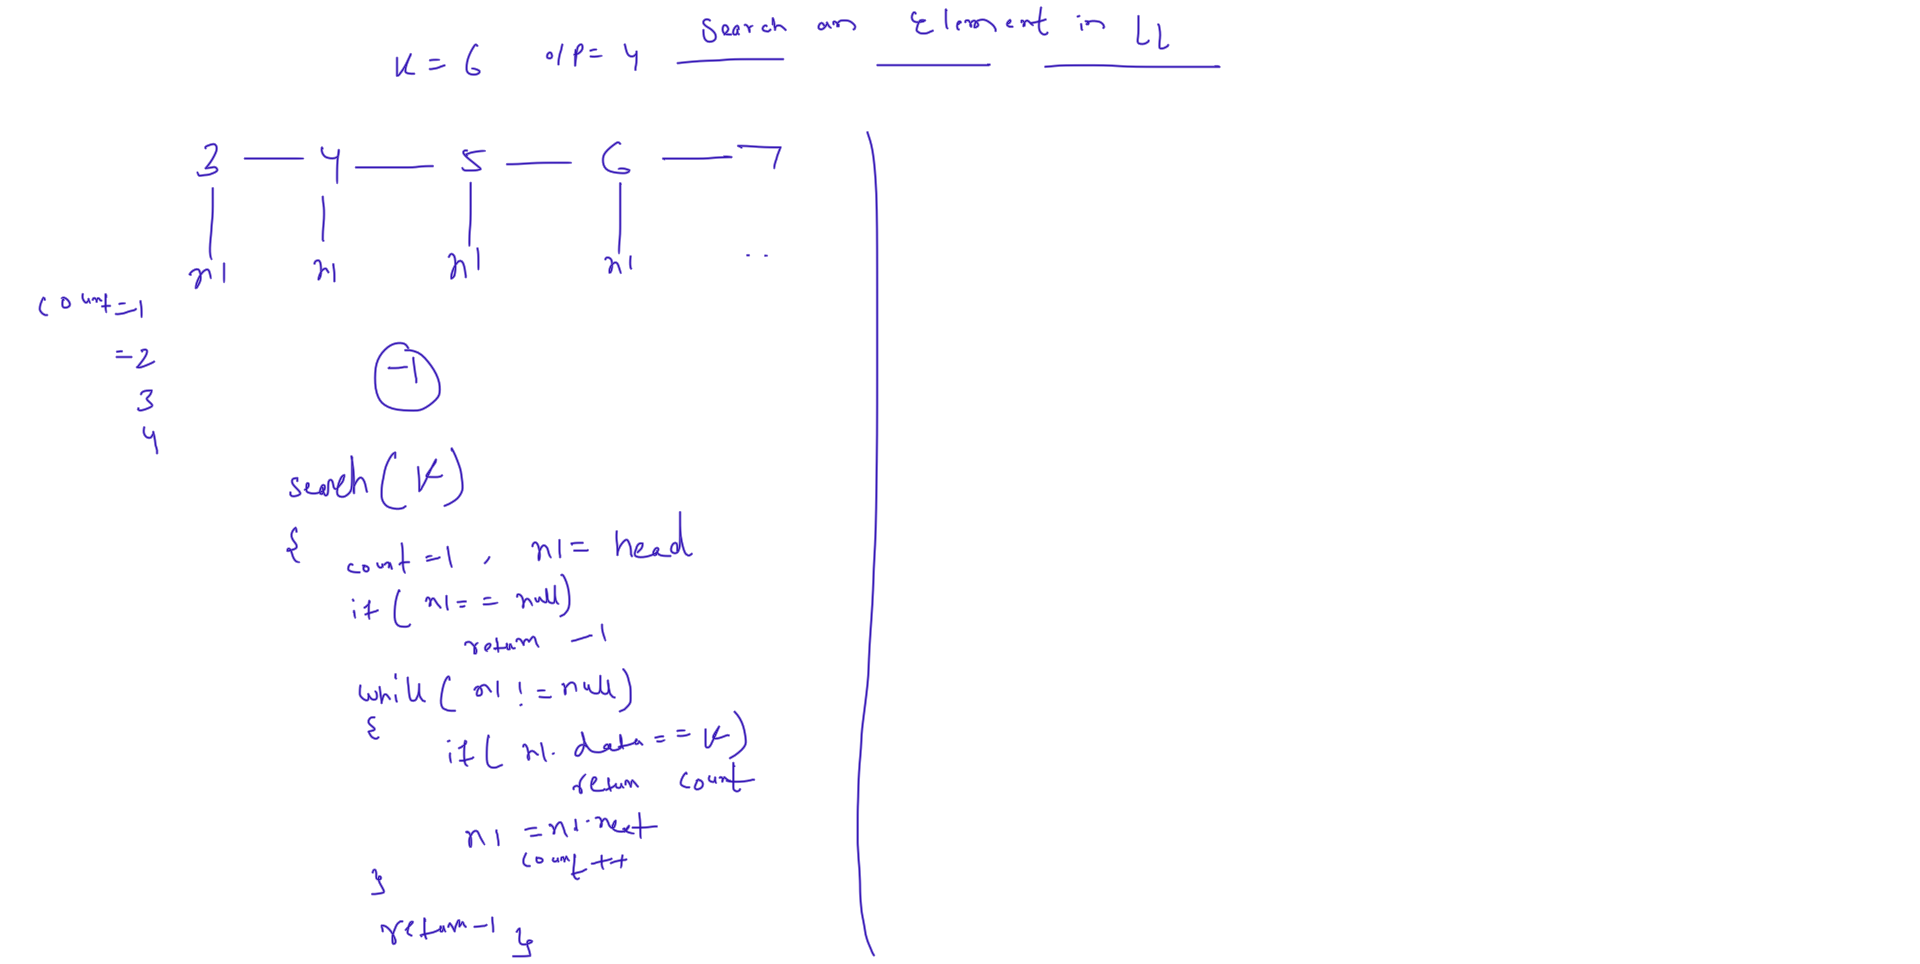 Search an Element in LL
K = 6 o/p = 4
3 — 4 — 5 — 6 — 7
n1 n1 n1 n1 ..
count = 1
= 2
3
4
-1
search(K)
{ count = 1, n1 = head
if( n1 == null)
return -1
while( n1 != null)
{
if( n1. data == K)
return count
n1 = n1.next
count ++
}
return -1 }